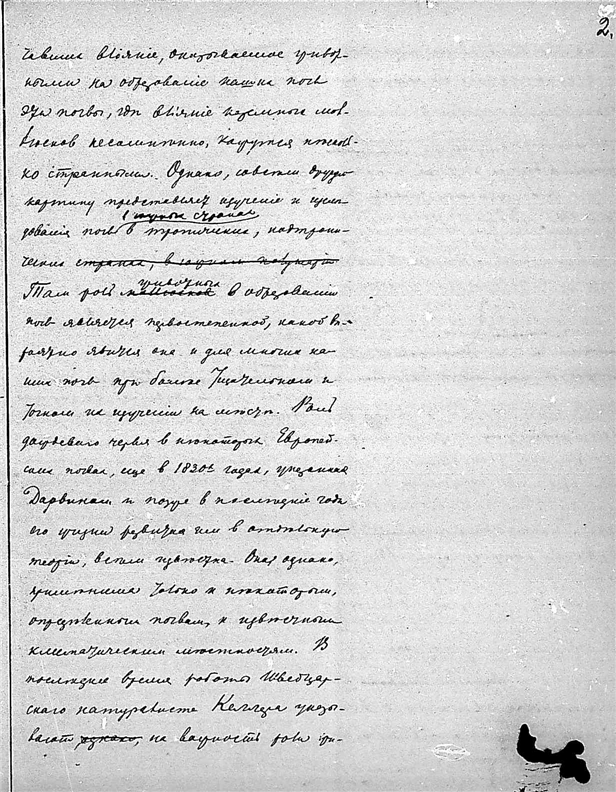 2.
вліяніе, оказываемое живот-
ными на образованіе нашихъ почвъ
почвы, гдѣ вліяніе наземныхъ мол-
люсковъ несомнѣнно, кажутся нѣсколь-
ко странными. Однако, совсѣмъ другую
картину представляетъ изученіе и изслѣ-
дованія почвъ въ тропическихъ, подтропи-
южныхъ странахъ
ческихъ странахъ, въ
животныхъ
Тамъ роль моллюсковъ въ образованіи
почвъ является первостепенной, какой вѣ-
роятно явится она и для многихъ на-
шихъ почвъ при болѣе тщательномъ и
точномъ ихъ изученіи на мѣстѣ. Роль
дождеваго червя въ нѣкоторыхъ Европей-
скихъ почвахъ, еще въ 1830хъ годахъ, указанная
Дарвиномъ и позже въ послѣдніе годы
его жизни развитая имъ въ отдѣльную
теорію, всѣмъ извѣстна. Она однако,
примѣнима только къ нѣкоторымъ,
опредѣленнымъ почвамъ, къ извѣстнымъ
климатическимъ мѣстностямъ. Въ
послѣднее время работы Швейцар-
скаго натуралиста Келлера указы-
ваютъ однако, на важность роли